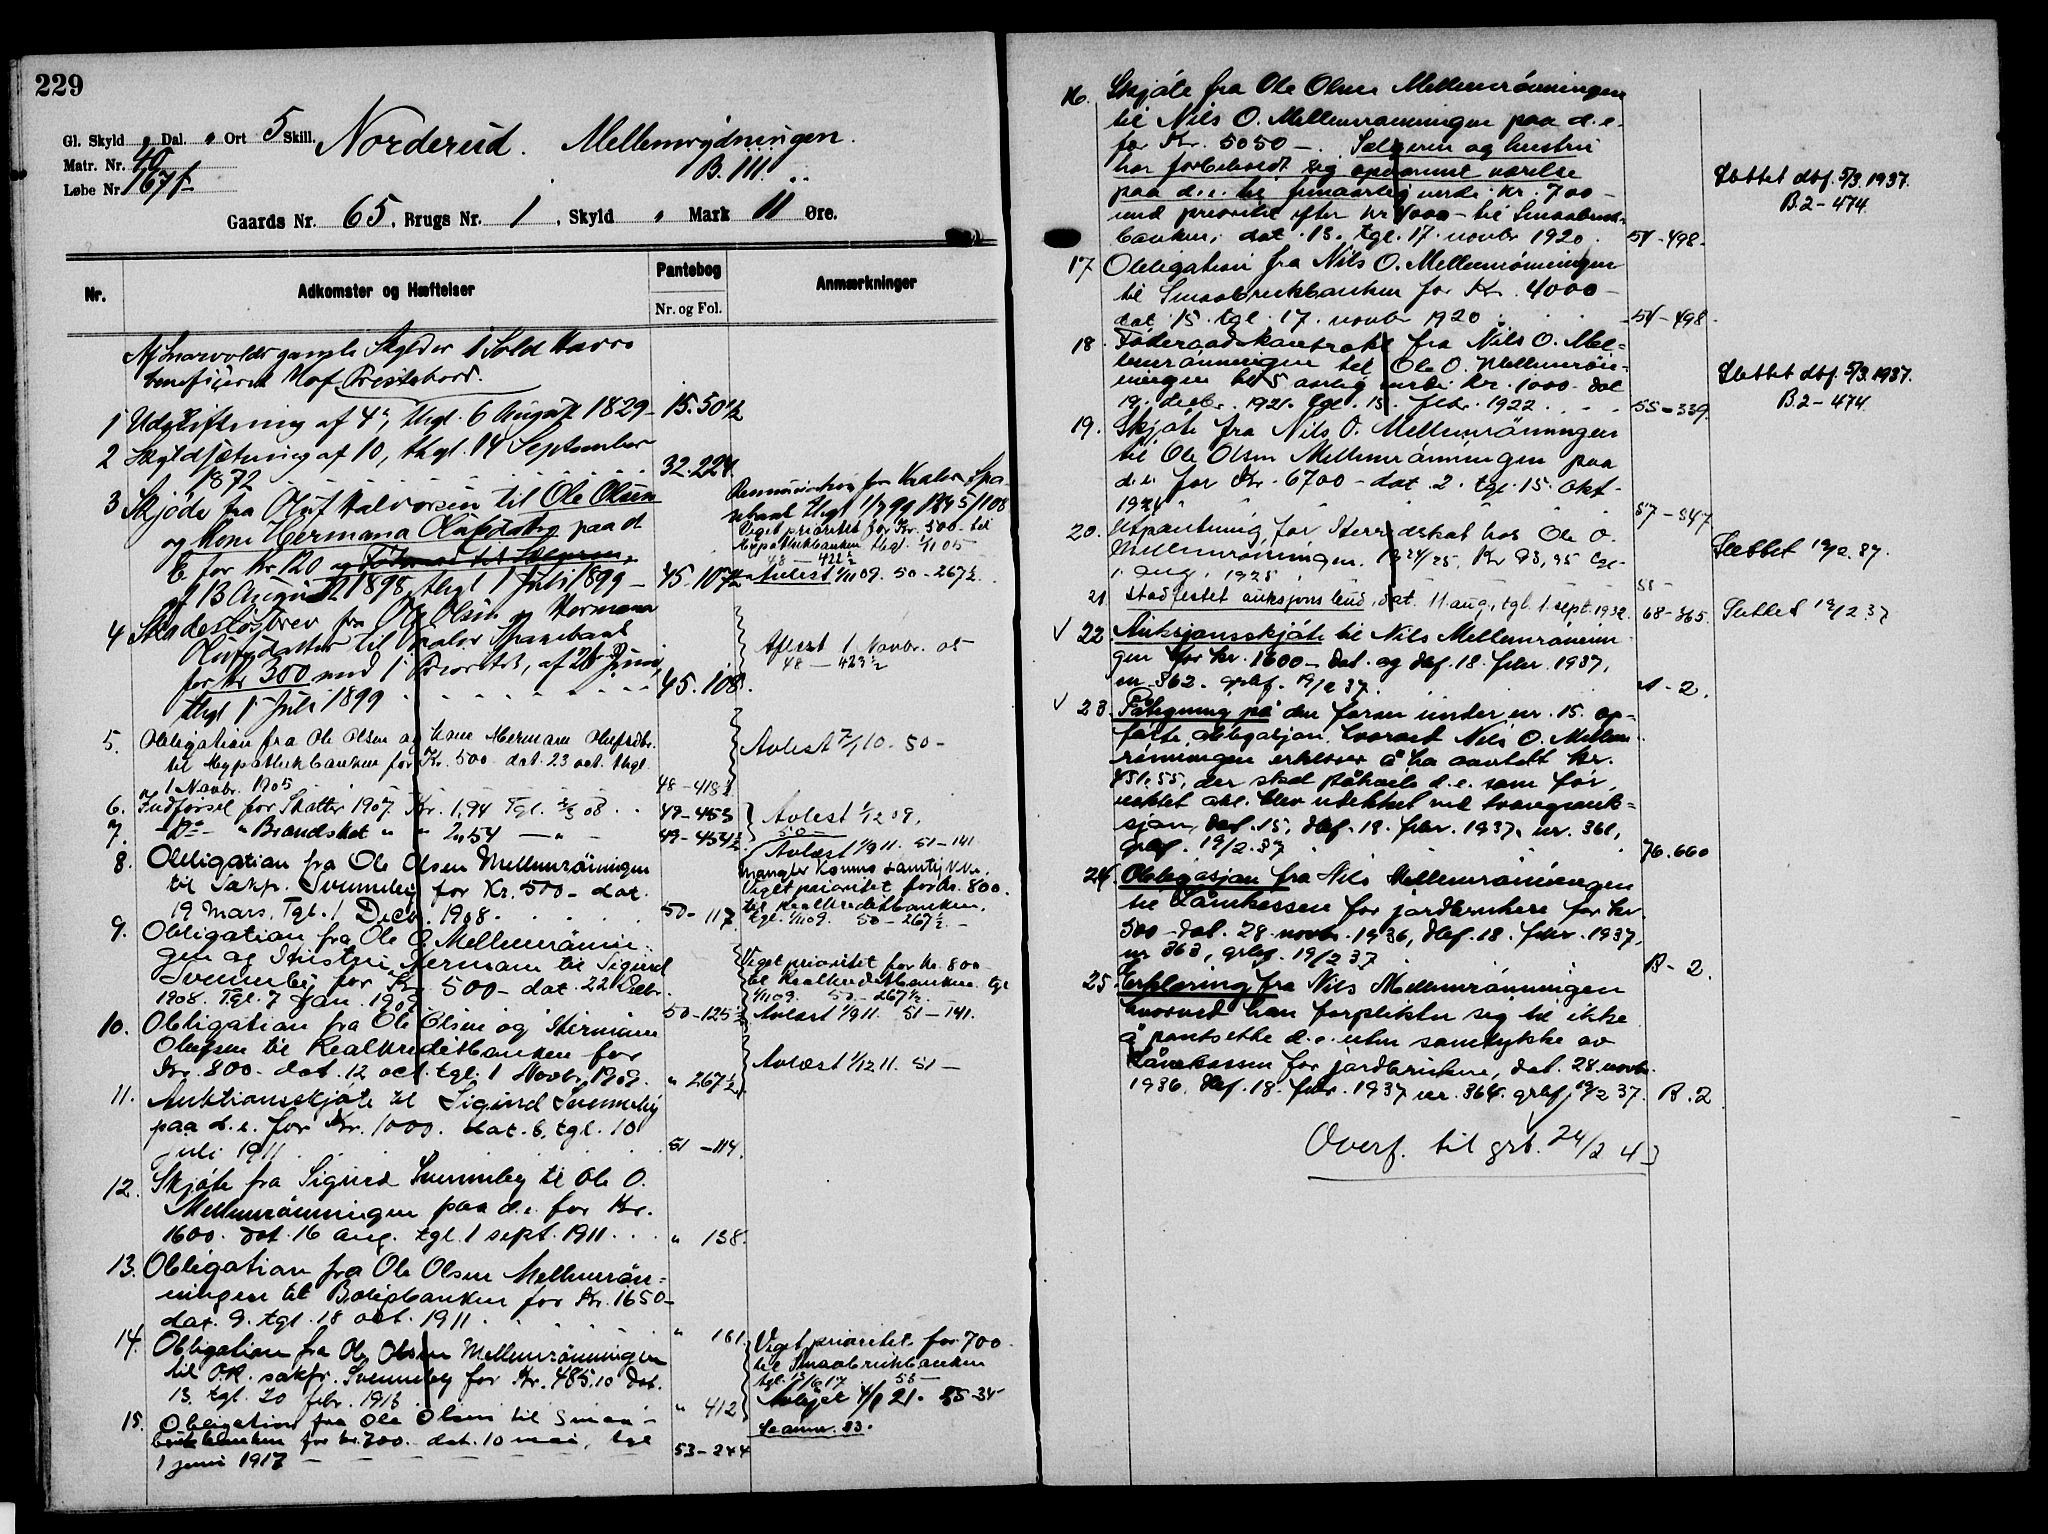 229
Gl. Skyld " Dal. " Ort 5 Skill. Norderud. Mellemrydningen.
Matr. Nr. 40
B. III.
Løbe Nr. 167f
Gaards Nr. 65, Brugs Nr. 1, Skyld " Mark 11 Øre.
Nr. Adkomster og Hæftelser Pantebog Anmærkninger
Nr. og Fol.
gamle Skylder 1 Sold Havre
beneficeret Hof Prestebord.
1 Udskiftning af 4', thgl. 6 August 1829 15.50½
2 Skyldsætning af 10, thgl. 14 September
1872 32.224
3 Skjøde fra Oluf Halvorsen til Ole Olsen
og Kone Hermana Olufsdatter paa d.
E for Kr 120 og
af 13 August 1898, thgl 1 Juli 1899 45.107½
thgl 1/7 99 1845/108
Veget prioritet for Kr. 500 til
Hypothekbanken thgl. 1/11 05
48 - 422½
Avlest 1/11 09. 50-267½.
4 Skadesløsbrev fra Ole Olsen og Hermana
Olufsdatter til Kaalor Sparebank
for Kr 300 med 1 Prioritet, af 26 Juni,
thgl 1 Juli 1899 45.108.
Aflest 1 Novbr. 05
48 - 423½
5. Obligation fra Ole Olsen og kone Hermana Olufsdtr.
til Hypothekbanken for Kr. 500 dat. 23 oct. thgl.
1 Novbr. 1905 48-418½
Avlest 7/1 10. 50-
6. Indførsel for Skatter 1907. Kr. 1,94 Tgl. 2/3 08 49-453
7. - Do - " Brandskat " " 2,54 - " - 49-454½
Avlest 1/12 09.
50-
8. Obligation fra Ole Olsen Mellemröningen
til Sakfr. Svenneby for Kr. 500- dat.
19 Mars. Tgl. 1 Decbr. 1908. 50-117
Avlæst 1/9 11. 51-141
mangler Konens samtykke.
Veget prioritet for Kr. 800.
til Realkreditbanken.
tgl. 1/11 09. 50-267½.-
9. Obligation fra Ole O. Mellemrönin-
gen og Hustru Hermana til Sigurd
Svenneby for Kr. 500- dat. 22 Decbr.
1908. Tgl. 7 Jan. 1909 50-125½
Veget prioritet for Kr. 800
til Realkreditbanken. tgl
1/11 09. 50-267½.
Avlæst 1/9 11. 51-141.
10. Obligation fra Ole Olsen og Hermana
Olufsen til Realkreditbanken for
Kr. 800- dat. 12 oct. tgl. 1 Novbr. 1909. " 267½
Avlæst 1/12 11. 51-
11. Auktionsskjøte til Sigurd Svenneby
paa d.e. for Kr. 1000. dat. 6. tgl. 10
juli 1911 51-114.
12. Skjøte fra Sigurd Svenneby til Ole O.
Mellemrönningen paa d.e. for Kr.
1600. dat. 16 aug. tgl. 1 sept. 1911. " 138.
13. Obligation fra Ole Olsen Mellemrön=
ningen til Boligbanken for Kr. 1650-
dat. 9. tgl. 18 oct. 1911 " 161.
14. Obligation fra Ole Olsen Mellemrönningen
til O.R. sakfr. Svenneby for Kr. 485,10 dat.
13. tgl. 20 febr. 1913 " 412
Veget prioritet for 700
til Smaabrukbanken
tgl. 53-
4/8 21. 55-34
15. Obligation fra Ole Olsen til Smaa-
brukbanken for kr. 700. dat. 10 mai, tgl
1 juni 1917 53-244
Se anm. 23.
16. Skjøte fra Ole Olsen Mellemrönningen
til Nils O. Mellemrönningen paa d.e.
for Kr. 5050-. Sælgeren og hustru
har forbeholdt sig opvarmet værelse
paa d.e. til femaarlig verdi kr. 700-
med prioritet efter kr 4000- til Smaabruk-
banken, dat. 15. tgl. 17. novbr 1920. 54-498.
Slettet dbf. 5/3.1937.
B.2-474.
17 Obligation fra Nils O. Mellemröningen
til Smaabrukbanken for Kr. 4000-
dat. 15. tgl. 17. novbr 1920. 54-498.
18. Føderaadskontrakt fra Nils O. Mel=
lemrönningen til Ole O. Mellemrön-
ningen til 5 aarlig verdi kr. 1000- dat
19. decbr. 1921. tgl. 15. febr. 1922. 55-339.
Slettet dbf. 5/3.1937.
B.2-474.
19. Skjøte fra Nils O. Mellemröningen
til Ole Olsen Mellemrönningen paa
d.e. for Kr. 6700- dat. 2. tgl. 15. okt.
1924 57-547
20. Utpantning for Herredskat hos Ole O.
Mellemröningen. 1924/25. Kr 93,95 tgl.
1. aug. 1925 58-
Slettet 19/2.37.
21 Stadfestet auksjonsbud, dat. 11 aug, tgl. 1 sept. 1932. 68-365.
Slettet 19/2 37
22. Auksjonsskjøte til Nils Mellemrönnin-
gen for kr. 1600- dat. og dbf. 18. febr. 1937,
nr. 362. grbf. 19/2 37. A-2.
23. Påtegning på den foran under nr. 15. op-
førte obligasjon. hvorved Nils O. Mellem-
rønningen erklærer å ha avtalt kr.
451.55, der skal påhvile d.e. som før,
uaktet obl. blev udekket ved tvangsauk-
sjon, dat. 15, dbf. 18. febr. 1937. nr. 361,
grbf. 19/2.37 76.660
24. Obligasjon fra Nils Mellemrönningen
til Lånekassen for jordbrukere for kr.
500- dat. 28 novbr. 1936, dbf. 18. febr. 1937,
nr 363, grbf. 19/2 37 B-2.
25. Erklæring fra Nils Mellemrönningen
hvorved han forplikter sig til ikke
å pantsette d.e. uten samtykke av
Lånekassen for jordbrukere, dat. 28. novbr.
1936. dbf. 18. febr. 1937 nr. 364. grbf. 19/2 37. B.2
Overf. til grb. 24/2 43